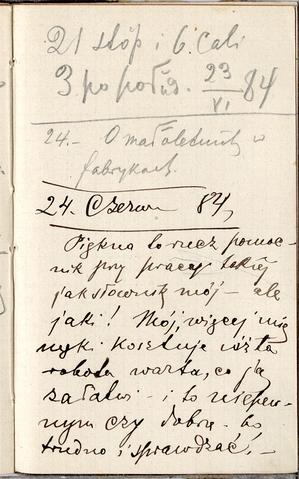 21 stóp i 6. Cali
3. po połud. 23/VI 84
24.- O małoletnich w
fabrykach.
24. Czerw 84,
Piękna to rzecz pomoc-
nik przy pracy takiej
jak słownik mój - ale
jaki! Mój, więcej mię
kosztuje niż ta
robota warta, co ja
załatwi - i to niepew-
nym czy dobrze. bo
trudno i sprawdzać. -